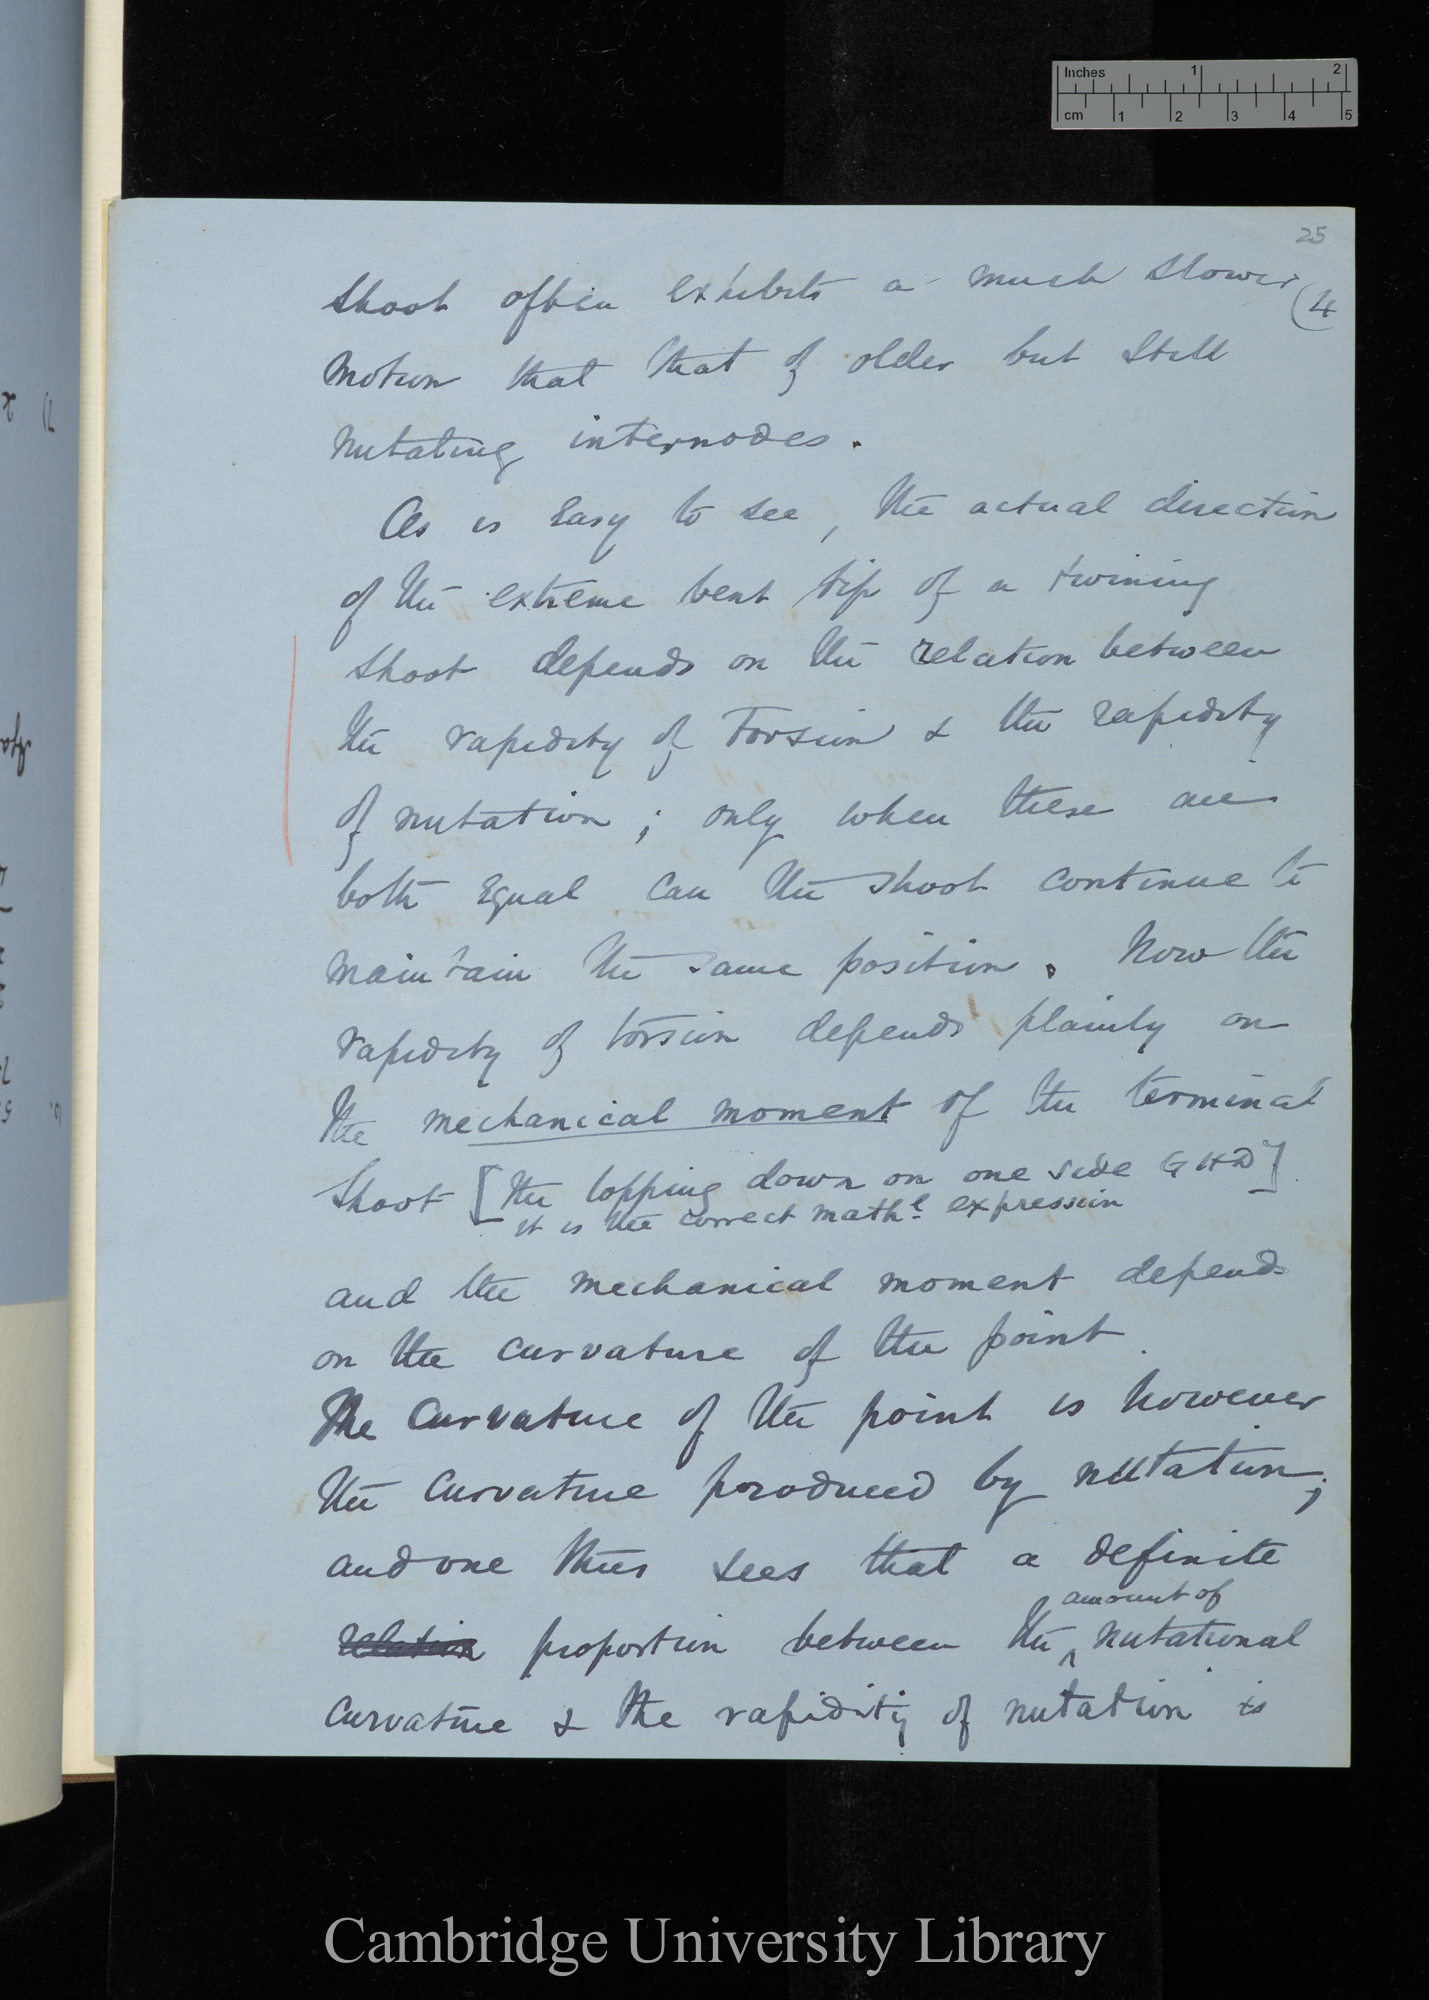 Inches 1 2
cm 1 2 3 4 5
25
shoot often exhibits a much slower
(4
motion that that of older but still
nutating internodes.
As is easy to see, the actual direction
of the extreme bent tip of a twining
shoot depends on the relation between
the rapidity of Torsion & the rapidity
of nutation; only when these are
both equal can the shoot continue to
maintain the same position. Now the
rapidity of torsion depends plainly on
the mechanical moment of the terminal
shoot [the lopping down on one side GHD]
it is the correct mathl expression
and the mechanical moment depends
on the curvature of the point.
The curvature of the point is however
the curvature produced by nutation;
and one thus sees that a definite
amount of
relation proportion between the ^ nutational
curvature & the rapidity of nutation is
Cambridge University Library